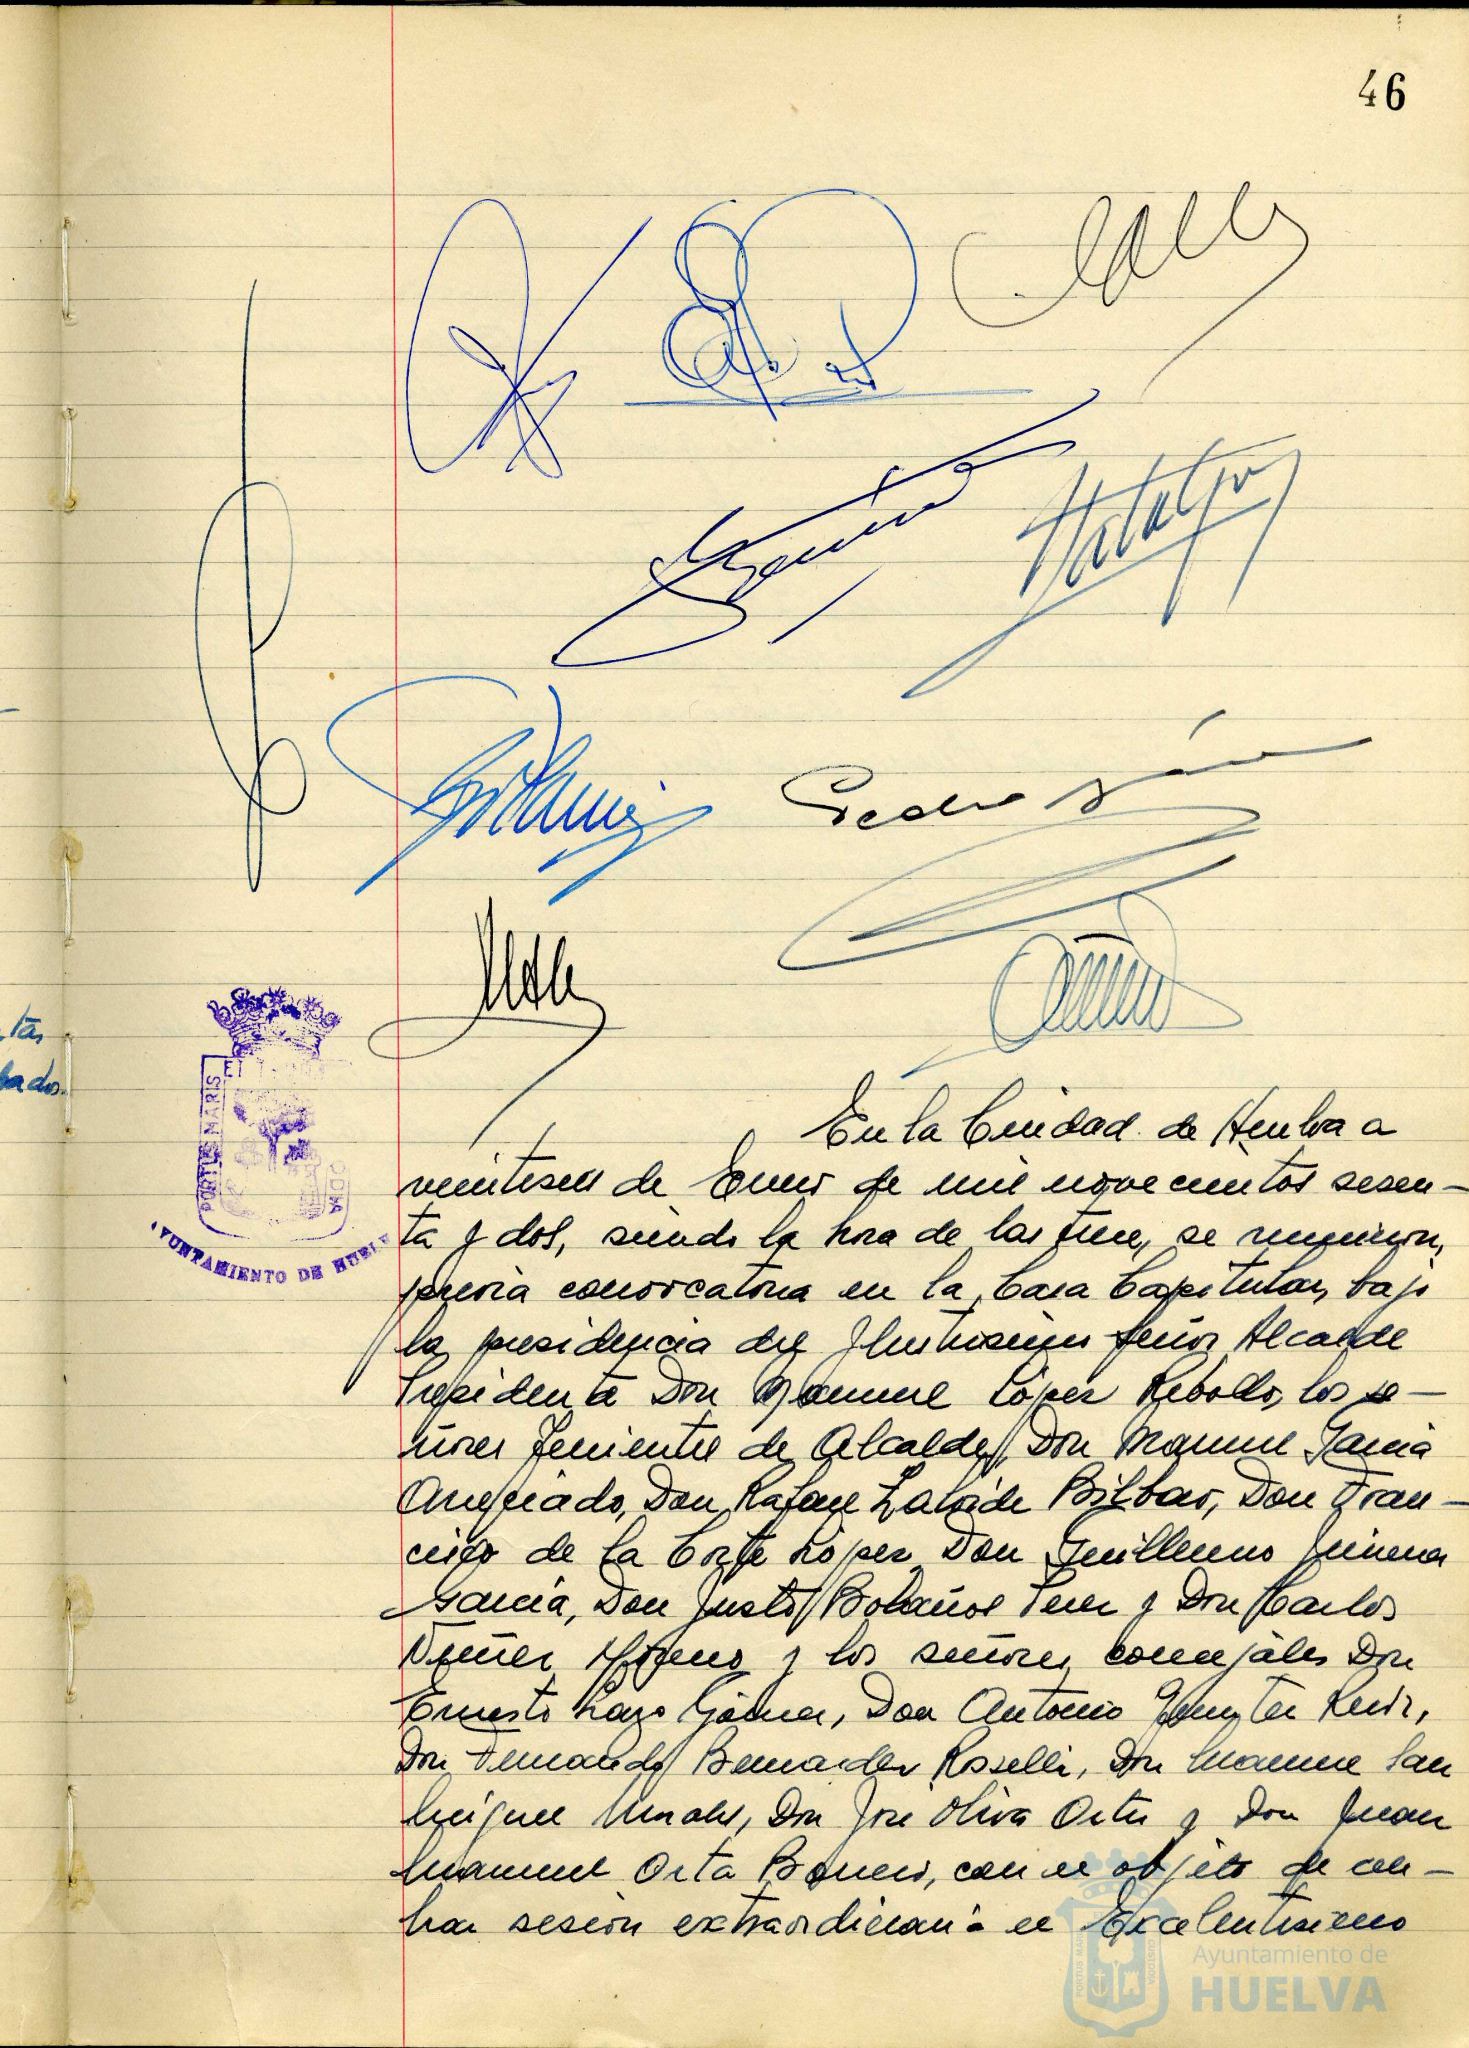 46
tas
bados.
Pedro
PORTUS MARIS ET
AYUNTAMIENTO DE HUELVA
En la Ciudad de Huelva a
veintiseis de Enero de mil novecientos sesen-
ta y dos, siendo la hora de las trece, se reunieron,
previa convocatoria en la Casa Capitular, bajo
la presidencia del Ilustrisimo Señor Alcalde
Presidente Don Manuel López Rebollo, los se-
ñores Tenientes de Alcalde, Don Manuel Garcia
Don Rafael Bilbao, Don Fran-
cisco de la Corte López, Don Guillermo Jimenez
Garcia, Don Justo Bolaños Perez y Don Carlos
Nuñez Moreno y los señores concejales Don
Ernesto Lazo Gómez, Don Antonio Ruiz,
Don Fernando Bermudez Rosselli, Don Manuel San
Miguel Don José Oliva Ortiz y Don Juan
Manuel Orta Borrero, con el objeto de cele-
brar sesión extraordinaria el Excelentisimo
Ayuntamiento de
HUELVA